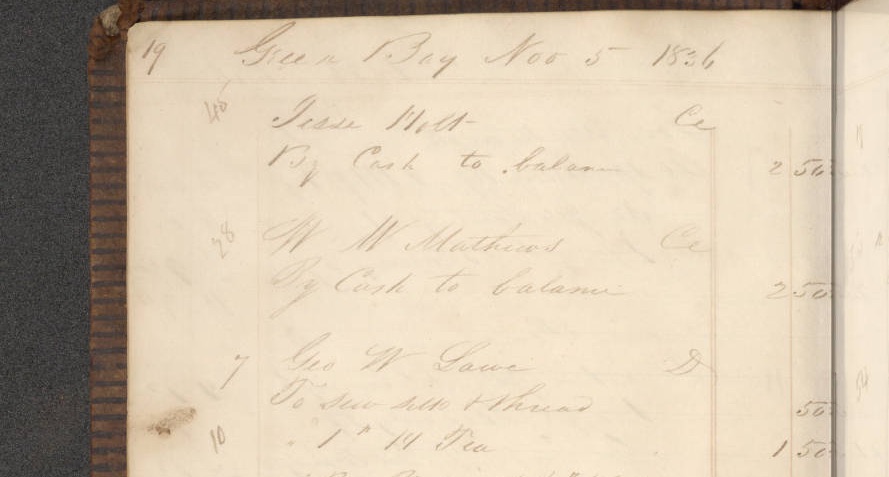 19 Green Bay Nov 5 1836
45 Jesse Holt Cr
By Cash to balance 2 50
28 W W Mathews Cr
By Cash to balance 2 50
7 Geo W Lawe D
To sew silk & thread 50
10 " 1 " Tea 1 50